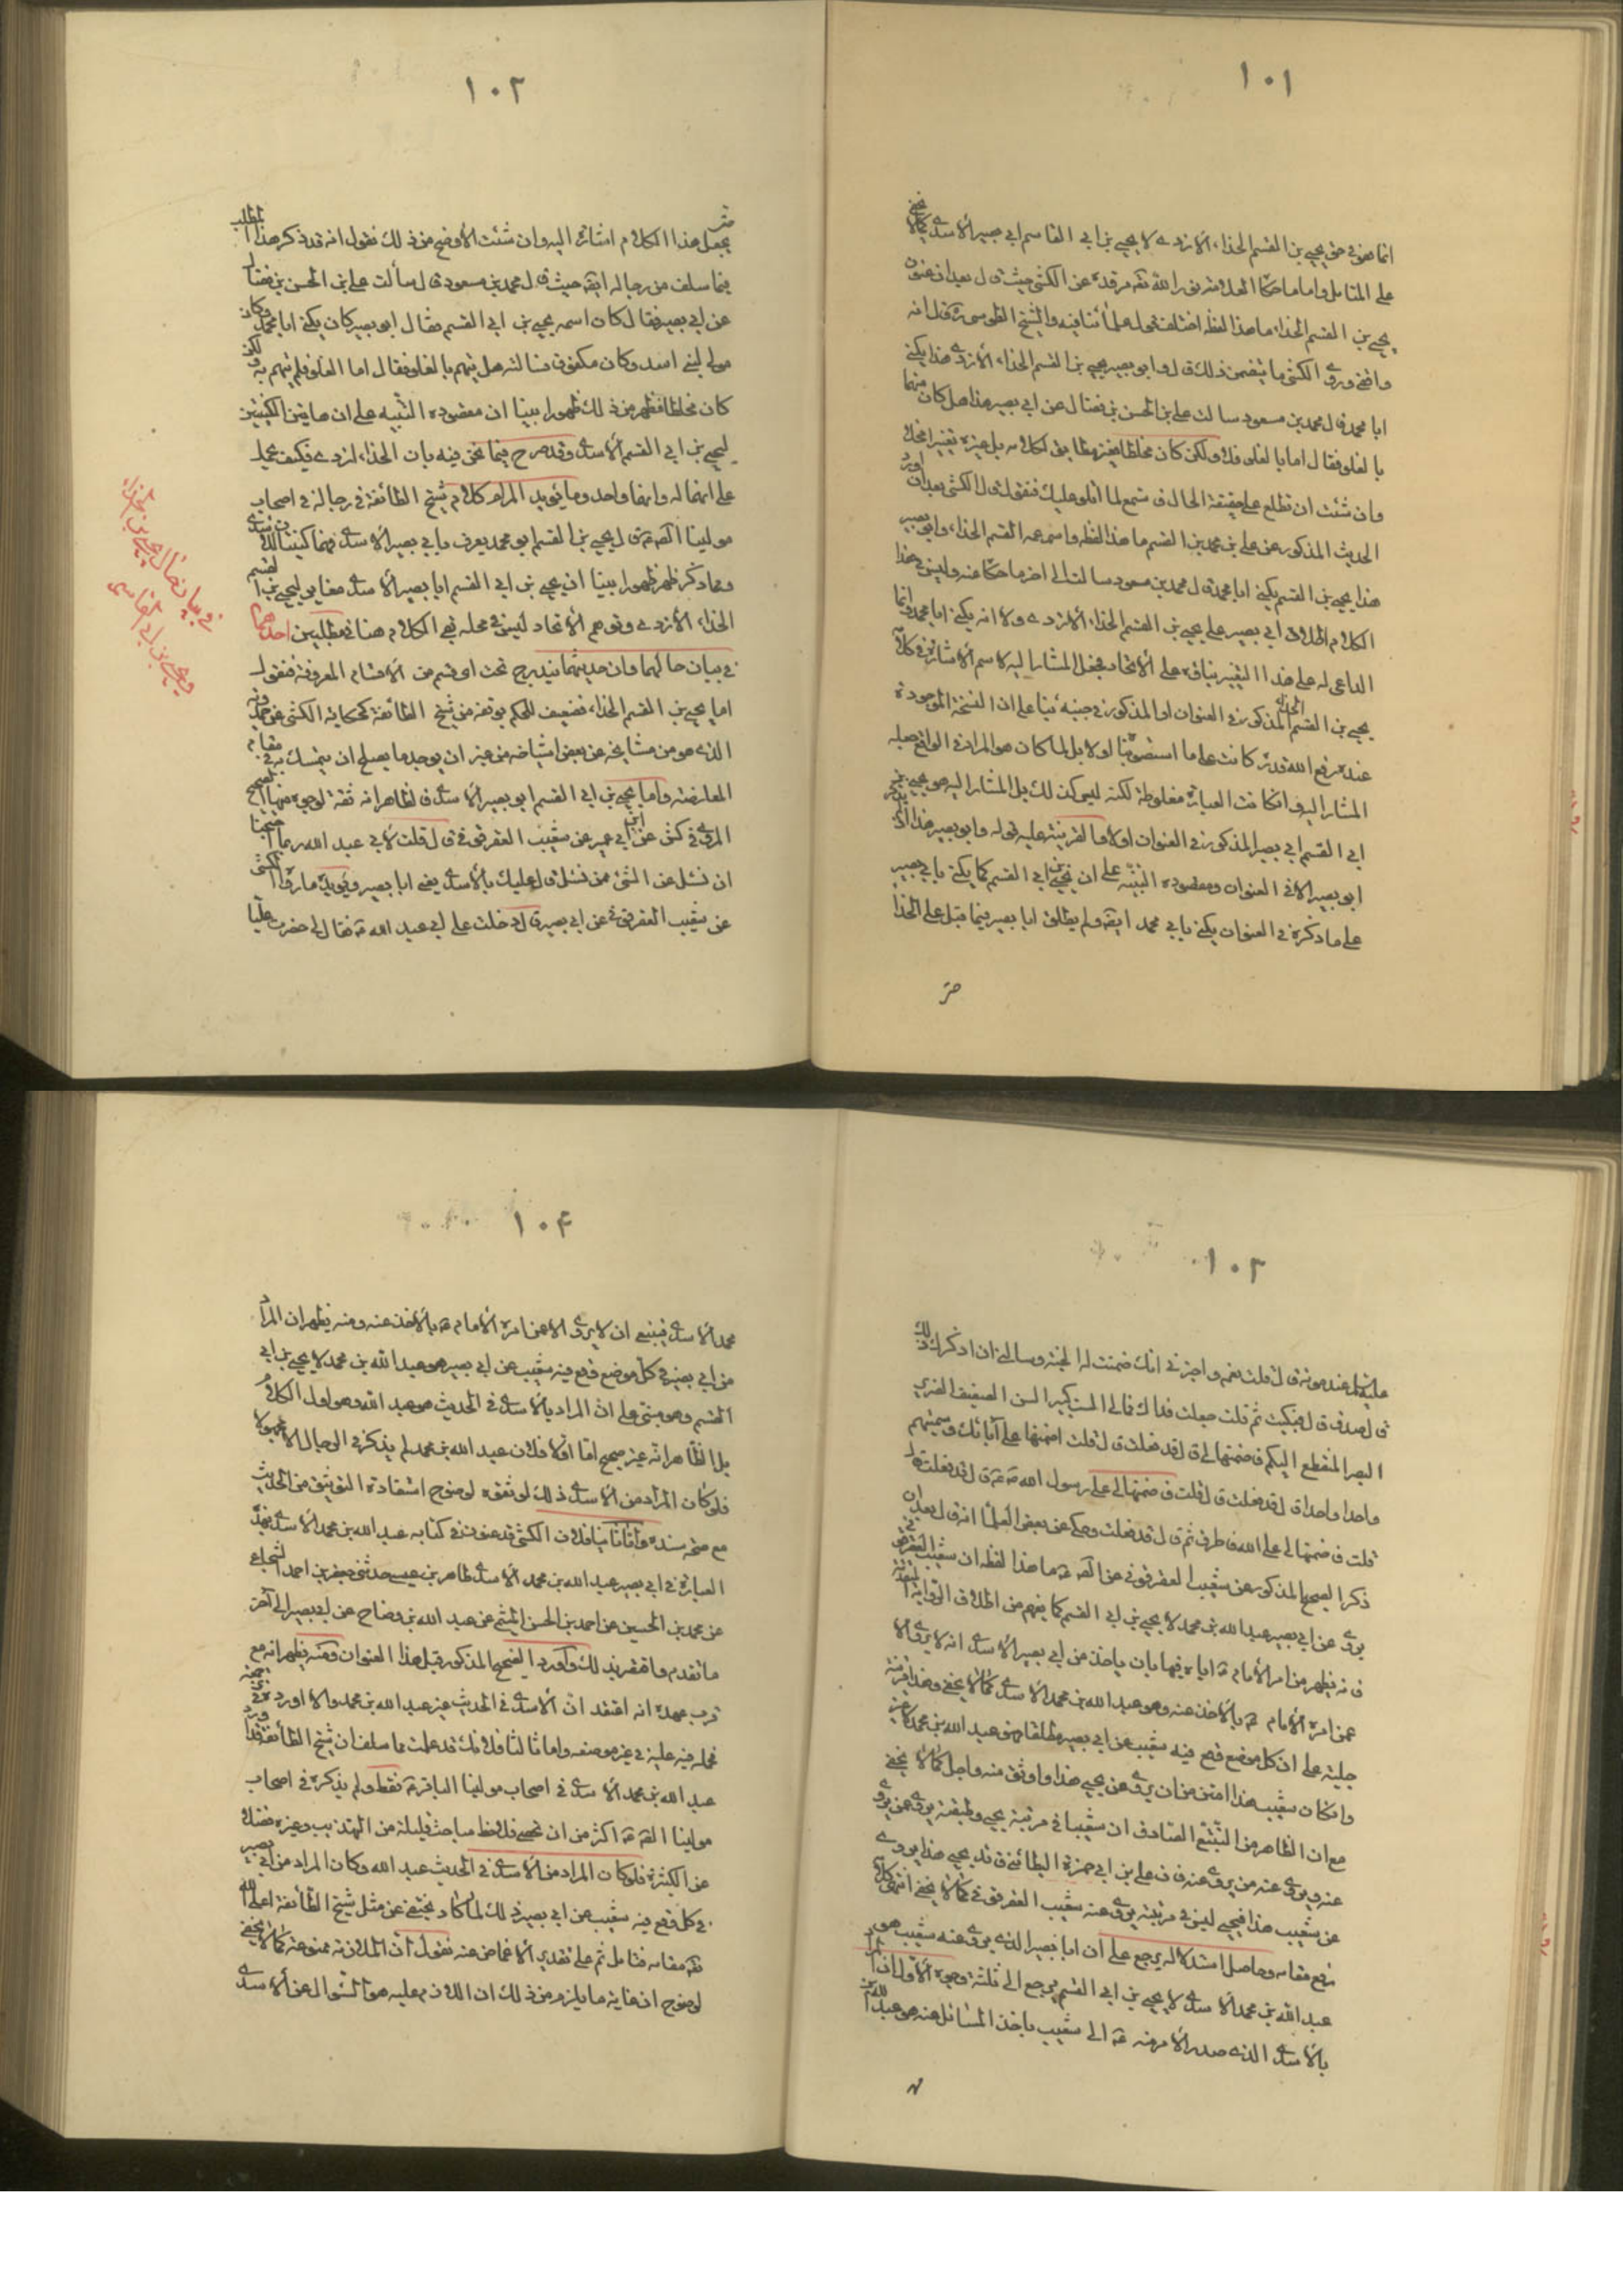 ١٠١
انما هو في حق يحيى بن القسم الحذاء الأزدي لا يحيى بن ابي القاسم ابي بصير الأسدي كما لا يخفى
على المتأمل واما ما حكاه العلامة نور الله تعه مرقده عن الكشي حيث قال بعد ان عنون
يحيى بن القسم الحذاء ما هذا لفظه اختلف قول علمائنا فيه والشيخ الطوسي ره قال انه
واقفي وروى الكشي ما يتضمن ذلك قال وابو بصير يحيى بن القسم الحذاء الأزدي هذا يكنى
ابا محمد قال محمد بن مسعود سالت علي بن الحسن بن فضال عن ابي بصير هذا هل كان متهما
بالغلو فقال اما بالغلو فلا ولكن كان مخلطا فغير مطابق لكلامه بل غيره تغييرا مخلا
وان شئت ان تطلع على حقيقة الحال فاستمع لما اتلو عليك فنقول قال الكشي بعد ان اورد
الحديث المذكور عن علي بن محمد بن القسم ما هذا لفظه واسم عمه القسم الحذاء وابو بصير
هذا يحيى بن القسم يكنى ابا محمد قال محمد بن مسعود سالت الى اخر ما حكاه عنه وليس في هذا
الكلام اطلاق ابي بصير على يحيى بن القسم الحذاء الأزدي ولا انه يكنى ابا محمد وانما
الداعي له على هذا التغيير بناؤه على الأتحاد فجعل المشار اليه لاسم الأشارة في كلامه
يحيى بن القسم الحذاء المذكور في العنوان او المذكور في جنبه بناء على ان النسخة الموجودة
عنده رفع الله قدره كانت على ما استصوبنا اولا بل لما كان هو المراد في الواقع جعله
المشار اليه وان كانت العبارة مغلوطة لكنه ليس كذلك بل المشار اليه هو يحيى بن
ابي القسم ابي بصير المذكور في العنوان اولا والقرينة عليه قوله وابو بصير هذا اذ لم يذكر
ابو بصير الا في العنوان ومقصوده التنبيه على ان يحيى بن ابي القسم كما يكنى بابي بصير
على ما ذكره في العنوان يكنى بابي محمد ايضه ولم يطلق ابا بصير فيما قبل على الحذاء
حتى
١٠٢
حتى يجعل هذا الكلام اشارة اليه وان شئت الأوضح من ذلك نقول انه قد ذكر هذا المطلب
فيما سلف من رجاله ايضه حيث قال محمد بن مسعود قال سألت علي بن الحسن بن فضال
عن ابي بصير فقال كان اسمه يحيى بن ابي القسم فقال ابو بصير كان يكنى ابا محمد وكان
مولى لبني اسد وكان مكفوفا فسالته هل يتهم بالغلو فقال اما الغلو فلم يتهم به ولكن
كان مخلطا فظهر من ذلك ظهورا بينا ان مقصوده التنبيه على ان هاتين الكنيتين
ليحيى بن ابي القسم الأسدي وقد صرح فيما نحن فيه بان الحذاء ازدي فكيف يحمل
على انهما له وانهما واحد ومما يؤيد المرام كلام شيخ الطائفة في رجاله في اصحاب
مولينا الصه عه قال يحيى بن القسم ابو محمد يعرف بابي بصير الأسدي
ومما ذكر ظهر ظهورا بينا ان يحيى بن ابي القسم ابا بصير الأسدي مغاير ليحيى بن القسم
الحذاء الأزدي وتوهم الأتحاد ليس في محله فح الكلام هنا في مطلبين احدهما
في بيان حالهما وان حديثهما يندرج تحت اى قسم من الاقسام المعروفة فنقول
اما يحيى بن القسم الحذاء فضعيف للحكم بوقفه من شيخ الطائفة كحكاية الكشي عن حمدويه
الذي هو من مشايخه عن بعض اشياخه من غير ان يوجد ما يصلح ان يتمسك به في مقام
المعارضة واما يحيى بن ابي القسم ابو بصير الأسدي فالظاهر انه ثقة لوجوه منها الصحيح
المروي في كش عن ابن ابي عمير عن شعيب العقرقوفي قال قلت لأبي عبد الله ربما احتجنا
ان نسئل عن الشئ فمن نسئل قال عليك بالأسدي يعني ابا بصير ويؤيده ما رواه الكشي
عن شعيب العقرقوفي عن ابي بصير قال دخلت على ابي عبد الله عه فقال لي حضرت علباء
في بيان حال يحيى بن الحذاء
ويحيى بن ابي القاسم
١٠٣
علباء عند موته قال قلت نعم واخبرني انك ضمنت له الجنة وسالني ان اذكرك ذلك
قال صدق قال فبكيت ثم قلت جعلت فداك فمالي الست كبير السن الضعيف الضرير
البصر المنقطع اليكم فاضمنها لي قال قد فعلت قال قلت اضمنها على آبائك وسميتهم
واحدا واحدا قال قد فعلت قال قلت فاضمنها لي على رسول الله صه قال قد فعلت قال
قلت فاضمنها لي على الله فاطرق ثم قال قد فعلت وحكي عن بعض العلماء انه قال بعد ان
ذكر الصحيح المذكور عن شعيب العقرقوفي عن الصه عه ما هذا لفظه ان شعيب العقرقوفي
يروي عن ابي بصير عبد الله بن محمد لا يحيى بن ابي القسم كما يفهم من اطلاق الرواية
فانه يظهر من امر الأمام عه اياه فيها بان ياخذ من ابي بصير الأسدي انه لا يروي الا
عمن امره الأمام عه بالأخذ عنه وهو عبد الله بن محمد الأسدي كما لا يخفى وهذا قرينة
جلية على ان كل موضع وقع فيه شعيب عن ابي بصير مطلقا فهو عبد الله بن محمد لا غير
وان كان شعيب هذا امتن من ان يروي عن يحيى هذا واوثق منه واجل كما لا يخفى
مع ان الظاهر من التتبع الصادق ان شعيبا في مرتبة يحيى وطبقته يروي عمن يروي
عنه ويروي عنه من يروي عنه فان علي بن ابي حمزة البطائني قائد يحيى هذا يروي
عن شعيب هذا فيحيى ليس في مرتبة يروي عنه شعيب العقرقوفي كما لا يخفى انتهى كلامه
رفع مقامه وحاصل استدلاله يرجع على ان ابا بصير الذي يروي عنه شعيب هو
عبد الله بن محمد الأسدي لا يحيى بن ابي القسم يرجع الى ثلثة وجوه الأول ان المراد
بالأسدي الذي صدر الأمر منه عه الى شعيب باخذ المسائل عنه هو عبد الله بن
١٠٤
محمد الأسدي فينبغي ان لا يروي الا عمن امره الأمام عه بالأخذ عنه ومنه يظهر ان المراد
من ابي بصير في كل موضع وقع فيه شعيب عن ابي بصير هو عبد الله بن محمد لا يحيى بن ابي
القسم وهو مبني على ان المراد بالأسدي في الحديث هو عبد الله وهو اول الكلام
بل الظاهر انه غير صحيح اما اولا فلان عبد الله بن محمد لم يذكر في الرجال الا مجهولا
فلو كان المراد من الأسدي ذلك لوثقوه لوضوح استفادة التوثيق من الحديث
مع صحة سنده واما ثانيا فلان الكشي قد عنون في كتابه عبد الله بن محمد الأسدي بهذه
العبارة في ابي بصير عبد الله بن محمد الأسدي طاهر بن عيسى حدثني جعفر بن احمد الشجاعي
عن محمد بن الحسين عن احمد بن الحسن الميثمي عن عبد الله بن وضاح عن ابي بصير الى آخر
ما تقدم واقتصر بذلك واورد الصحيح المذكور قبل هذا العنوان ومنه يظهر انه مع
قرب عهده انه اعتقد ان الأسدي في الحديث غير عبد الله بن محمد والا اورده في ترجمته
فحمله فيه عليه في غير موضعه واما ثالثا فلانك قد علمت مما سلف ان شيخ الطائفة قد اورد
عبد الله بن محمد الأسدي في اصحاب مولينا الباقر عه فقط ولم يذكره في اصحاب
مولينا الصه عه اكثر من ان تحصى فلاحظ مباحث قليلة من التهذيب وغيره فضلا
عن الكثيرة فلو كان المراد من الأسدي في الحديث عبد الله وكان المراد من ابي بصير
في كل وقع فيه شعيب عن ابي بصير ذلك لما كاد يختفي عن مثل شيخ الطائفة اعلى الله
تعه مقامه فتامل ثم على تقدير الأغماض عنه نقول ان الملازمة ممنوعة كما لا يخفى
لوضوح ان غاية ما يلزم من ذلك ان اللازم عليه هو السؤال عن الأسدي